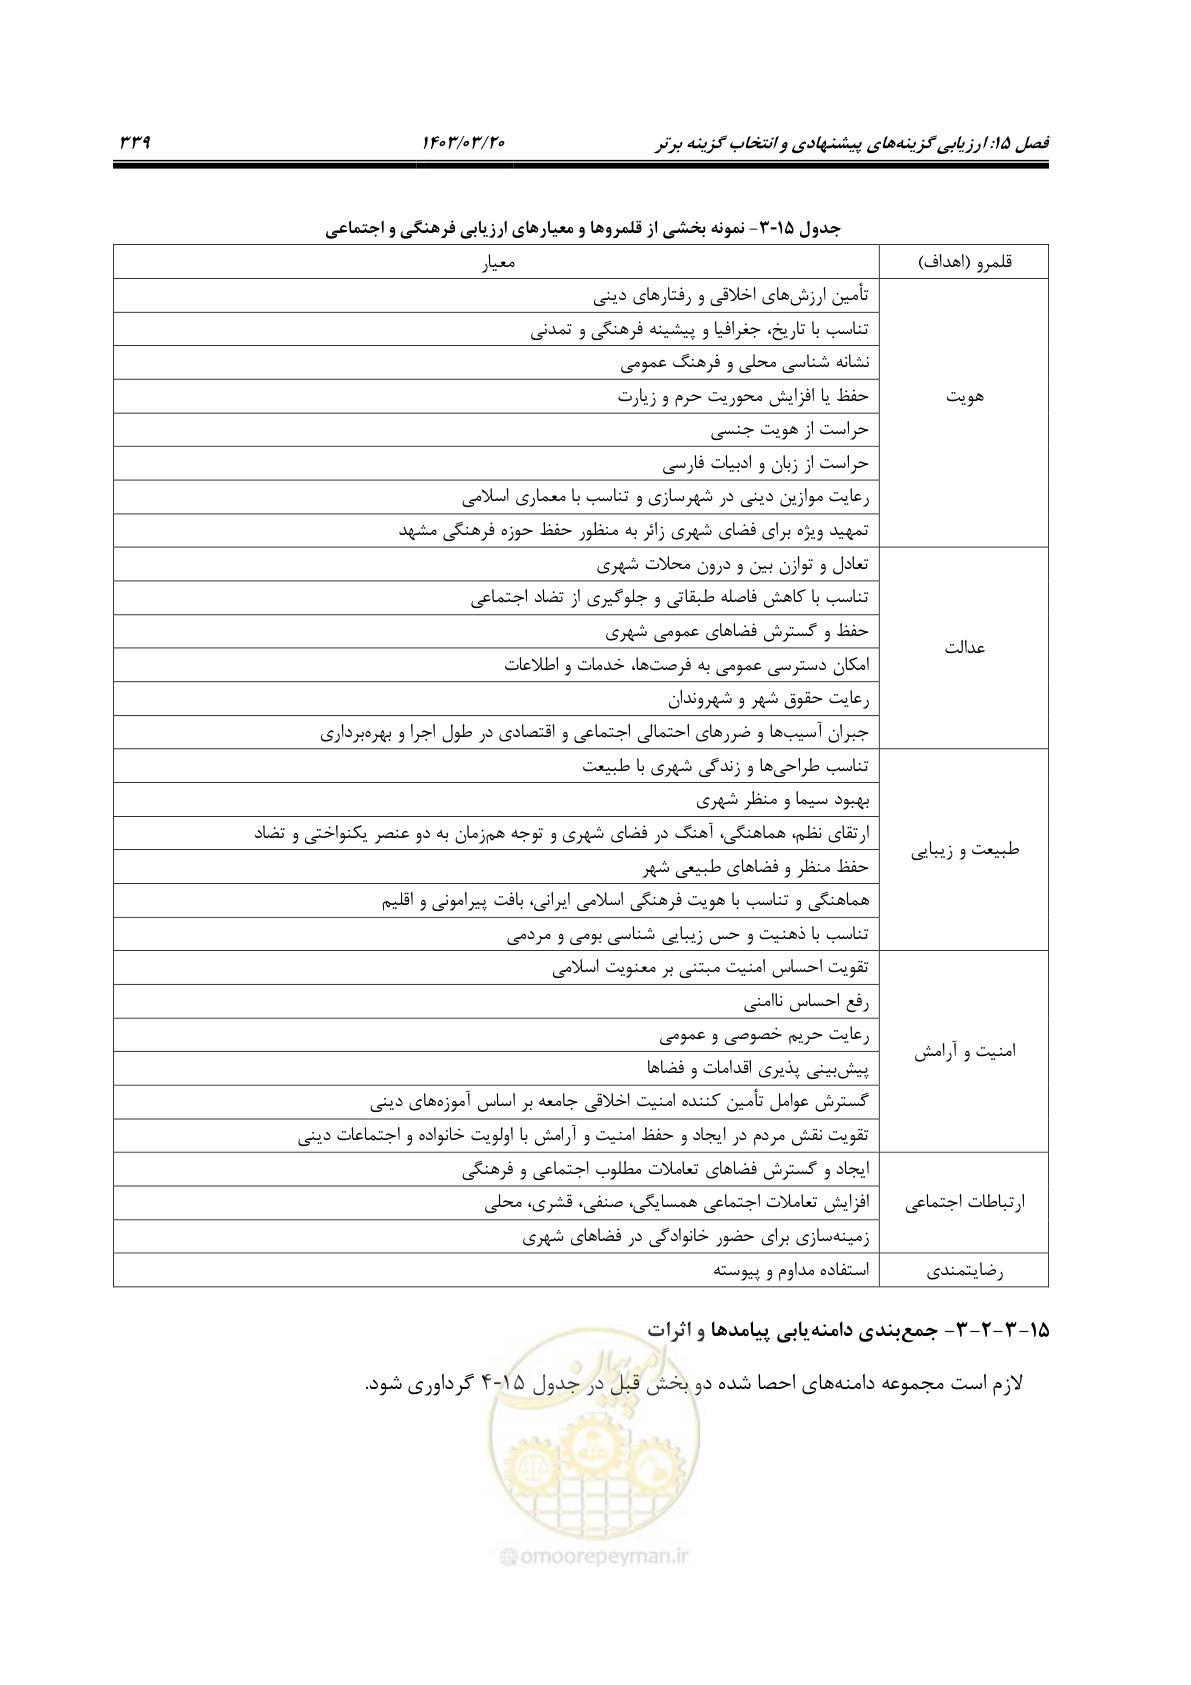 فصل ۱۵: ارزیابی گزینه‌های پیشنهادی و انتخاب گزینه برتر ۱۴۰۳/۰۳/۲۰ ۳۳۹
جدول ۱۵-۳- نمونه بخشی از قلمروها و معیارهای ارزیابی فرهنگی و اجتماعی
قلمرو (اهداف) معیار
هویت
تأمین ارزش‌های اخلاقی و رفتارهای دینی
تناسب با تاریخ، جغرافیا و پیشینه فرهنگی و تمدنی
نشانه شناسی محلی و فرهنگ عمومی
حفظ یا افزایش محوریت حرم و زیارت
حراست از هویت جنسی
حراست از زبان و ادبیات فارسی
رعایت موازین دینی در شهرسازی و تناسب با معماری اسلامی
تمهید ویژه برای فضای شهری زائر به منظور حفظ حوزه فرهنگی مشهد
عدالت
تعادل و توازن بین و درون محلات شهری
تناسب با کاهش فاصله طبقاتی و جلوگیری از تضاد اجتماعی
حفظ و گسترش فضاهای عمومی شهری
امکان دسترسی عمومی به فرصت‌ها، خدمات و اطلاعات
رعایت حقوق شهر و شهروندان
جبران آسیب‌ها و ضررهای احتمالی اجتماعی و اقتصادی در طول اجرا و بهره‌برداری
طبیعت و زیبایی
تناسب طراحی‌ها و زندگی شهری با طبیعت
بهبود سیما و منظر شهری
ارتقای نظم، هماهنگی، آهنگ در فضای شهری و توجه هم‌زمان به دو عنصر یکنواختی و تضاد
حفظ منظر و فضاهای طبیعی شهر
هماهنگی و تناسب با هویت فرهنگی اسلامی ایرانی، بافت پیرامونی و اقلیم
تناسب با ذهنیت و حس زیبایی شناسی بومی و مردمی
امنیت و آرامش
تقویت احساس امنیت مبتنی بر معنویت اسلامی
رفع احساس ناامنی
رعایت حریم خصوصی و عمومی
پیش‌بینی پذیری اقدامات و فضاها
گسترش عوامل تأمین کننده امنیت اخلاقی جامعه بر اساس آموزه‌های دینی
تقویت نقش مردم در ایجاد و حفظ امنیت و آرامش با اولویت خانواده و اجتماعات دینی
ارتباطات اجتماعی
ایجاد و گسترش فضاهای تعاملات مطلوب اجتماعی و فرهنگی
افزایش تعاملات اجتماعی همسایگی، صنفی، قشری، محلی
زمینه‌سازی برای حضور خانوادگی در فضاهای شهری
رضایتمندی
استفاده مداوم و پیوسته
۱۵-۳-۲-۳- جمع‌بندی دامنه‌یابی پیامدها و اثرات
لازم است مجموعه دامنه‌های احصا شده دو بخش قبل در جدول ۱۵-۴ گردآوری شود.
امور پیمان
@omoorepeyman.ir